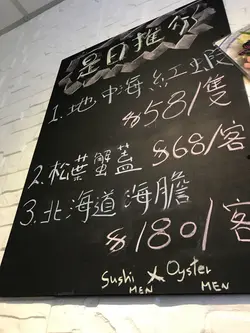 是日推介
1. 地中海紅蝦
$58/隻
2. 松葉蟹蓋 $68/客
3. 北海道海膽
$180/客
Sushi X Oyster
MEN MEN